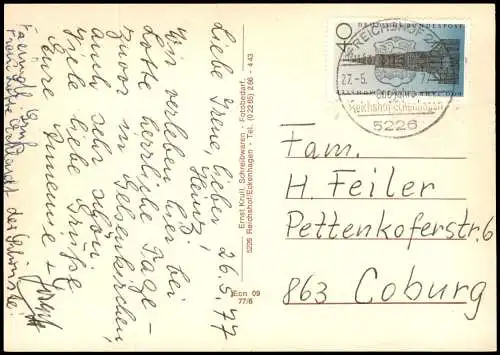 26.5.77
Liebe Irene, lieber
Heinz,
Wir verleben hier bei
Lotte herrliche Tage –
zuvor in Gelsenkirchen,
auch sehr schön.
Viele liebe Grüße
Eure Annemie
Ernst Krull, Schreibwaren - Fotobedarf,
5226 Reichshof/Eckenhagen - Tel. (0 22 65) 2 86 - 4 43
Ecn 09
77/6
DEUTSCHE BUNDESPOST
40
REICHSHOF
27.-5.
Reichshof-Eckenhagen
5226
Fam.
H. Feiler
Pettenkoferstr. 6
863 Coburg